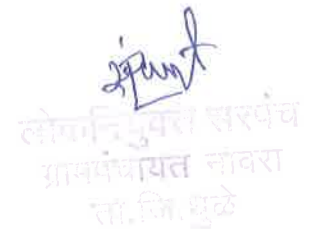 लोकनियुक्त सरपंच
ग्रामपंचायत नावरा
ता.जि.धुळे